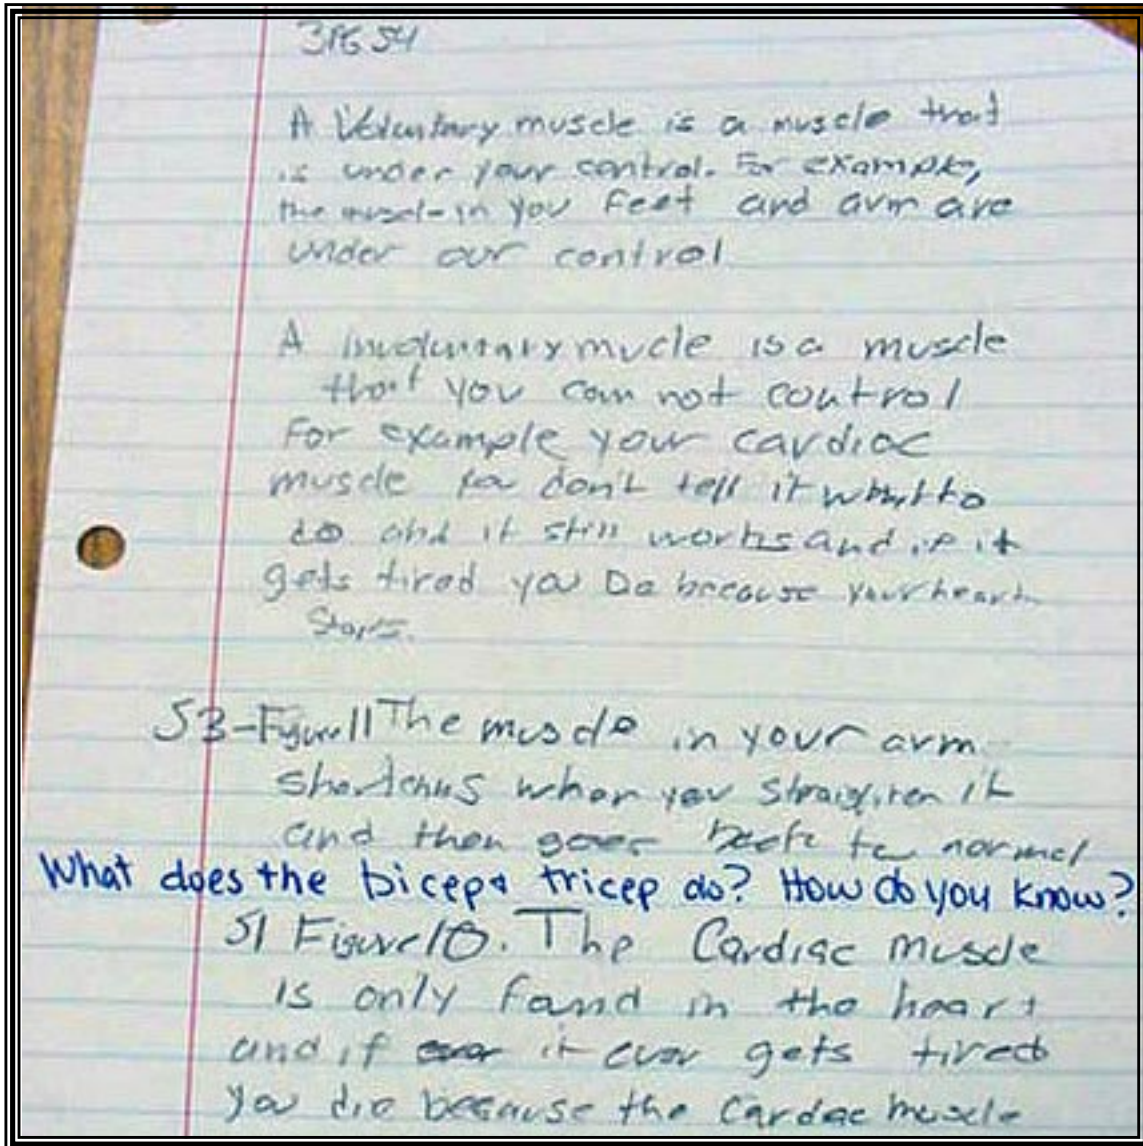 3PG 54
A Voluntary muscle is a muscle that
is under your control. For example,
the muscl in you feet and arm are
under our control
A involuntary mucle is a muscle
that you can not control
For example your cardiac
muscle you don't tell it what to
do and it still works and if it
gets tired you Die because your heart
Stops.
53-Figure 11 The muscle in your arm
shortens when you straighten it
and then goes back to normal
What does the bicep & tricep do? How do you know?
51 Figure 10. The Cardiac muscle
is only fand in the heart
and if it ever gets tired
you die because the Cardac muscle